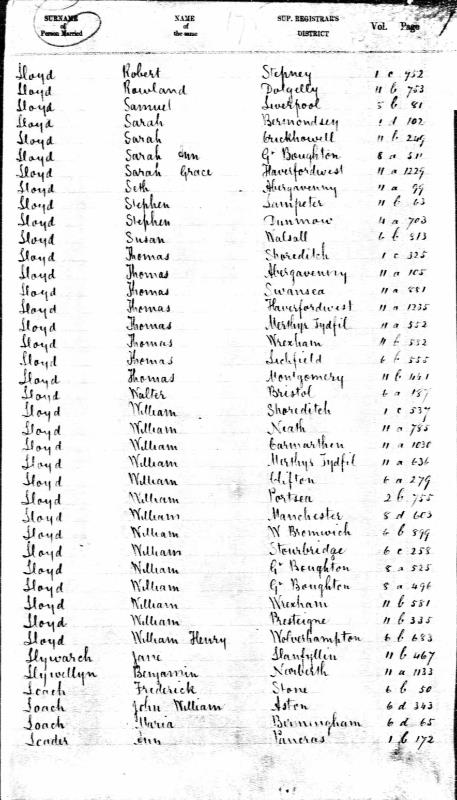 SURNAME of Person Married NAME of the same SUP. REGISTRAR'S DISTRICT Vol. Page
Lloyd Robert Stepney 1 c 952
Lloyd Rowland Dolgelly 11 b 753
Lloyd Samuel Liverpool 81
Lloyd Sarah Bermondsey 1 d 102
Lloyd Sarah Crickhowell 11 b 249
Lloyd Sarah Ann Gt Boughton 8 a 511
Lloyd Sarah Grace Haverfordwest 11 a 1229
Lloyd Seth Abergavenny 11 a 99
Lloyd Stephen Lampeter 11 b 63
Lloyd Stephen Dunmow 4 a 703
Lloyd Susan Walsall 6 b 813
Lloyd Thomas Shoreditch 1 c 325
Lloyd Thomas Abergavenny 11 a 105
Lloyd Thomas Swansea 11 a 881
Lloyd Thomas Haverfordwest 11 a 1235
Lloyd Thomas Merthyr Tydfil 11 a 552
Lloyd Thomas Wrexham 11 b 552
Lloyd Thomas Lichfield 6 b 555
Lloyd Thomas Montgomery 11 b 441
Lloyd Walter Bristol 6 a 187
Lloyd William Shoreditch 1 c 537
Lloyd William Neath 11 a 785
Lloyd William Carmarthen 11 a 1030
Lloyd William Merthyr Tydfil 11 a 636
Lloyd William Clifton 6 a 279
Lloyd William Portsea 2 b 755
Lloyd William Manchester 8 d 603
Lloyd William W Bromwich 6 b 899
Lloyd William Stourbridge 6 c 258
Lloyd William Gt Boughton 8 a 525
Lloyd William Gt Boughton 8 a 496
Lloyd William Wrexham 11 b 581
Lloyd William Presteigne 11 b 335
Lloyd William Henry Wolverhampton 6 b 683
Llywarch Jane Llanfyllin 11 b 467
Llywellyn Benjamin Narberth 11 a 1133
Loach Frederick Stone 6 b 50
Loach John William Aston 6 d 343
Loach Maria Birmingham 6 d 65
Loader Ann Pancras 1 b 172